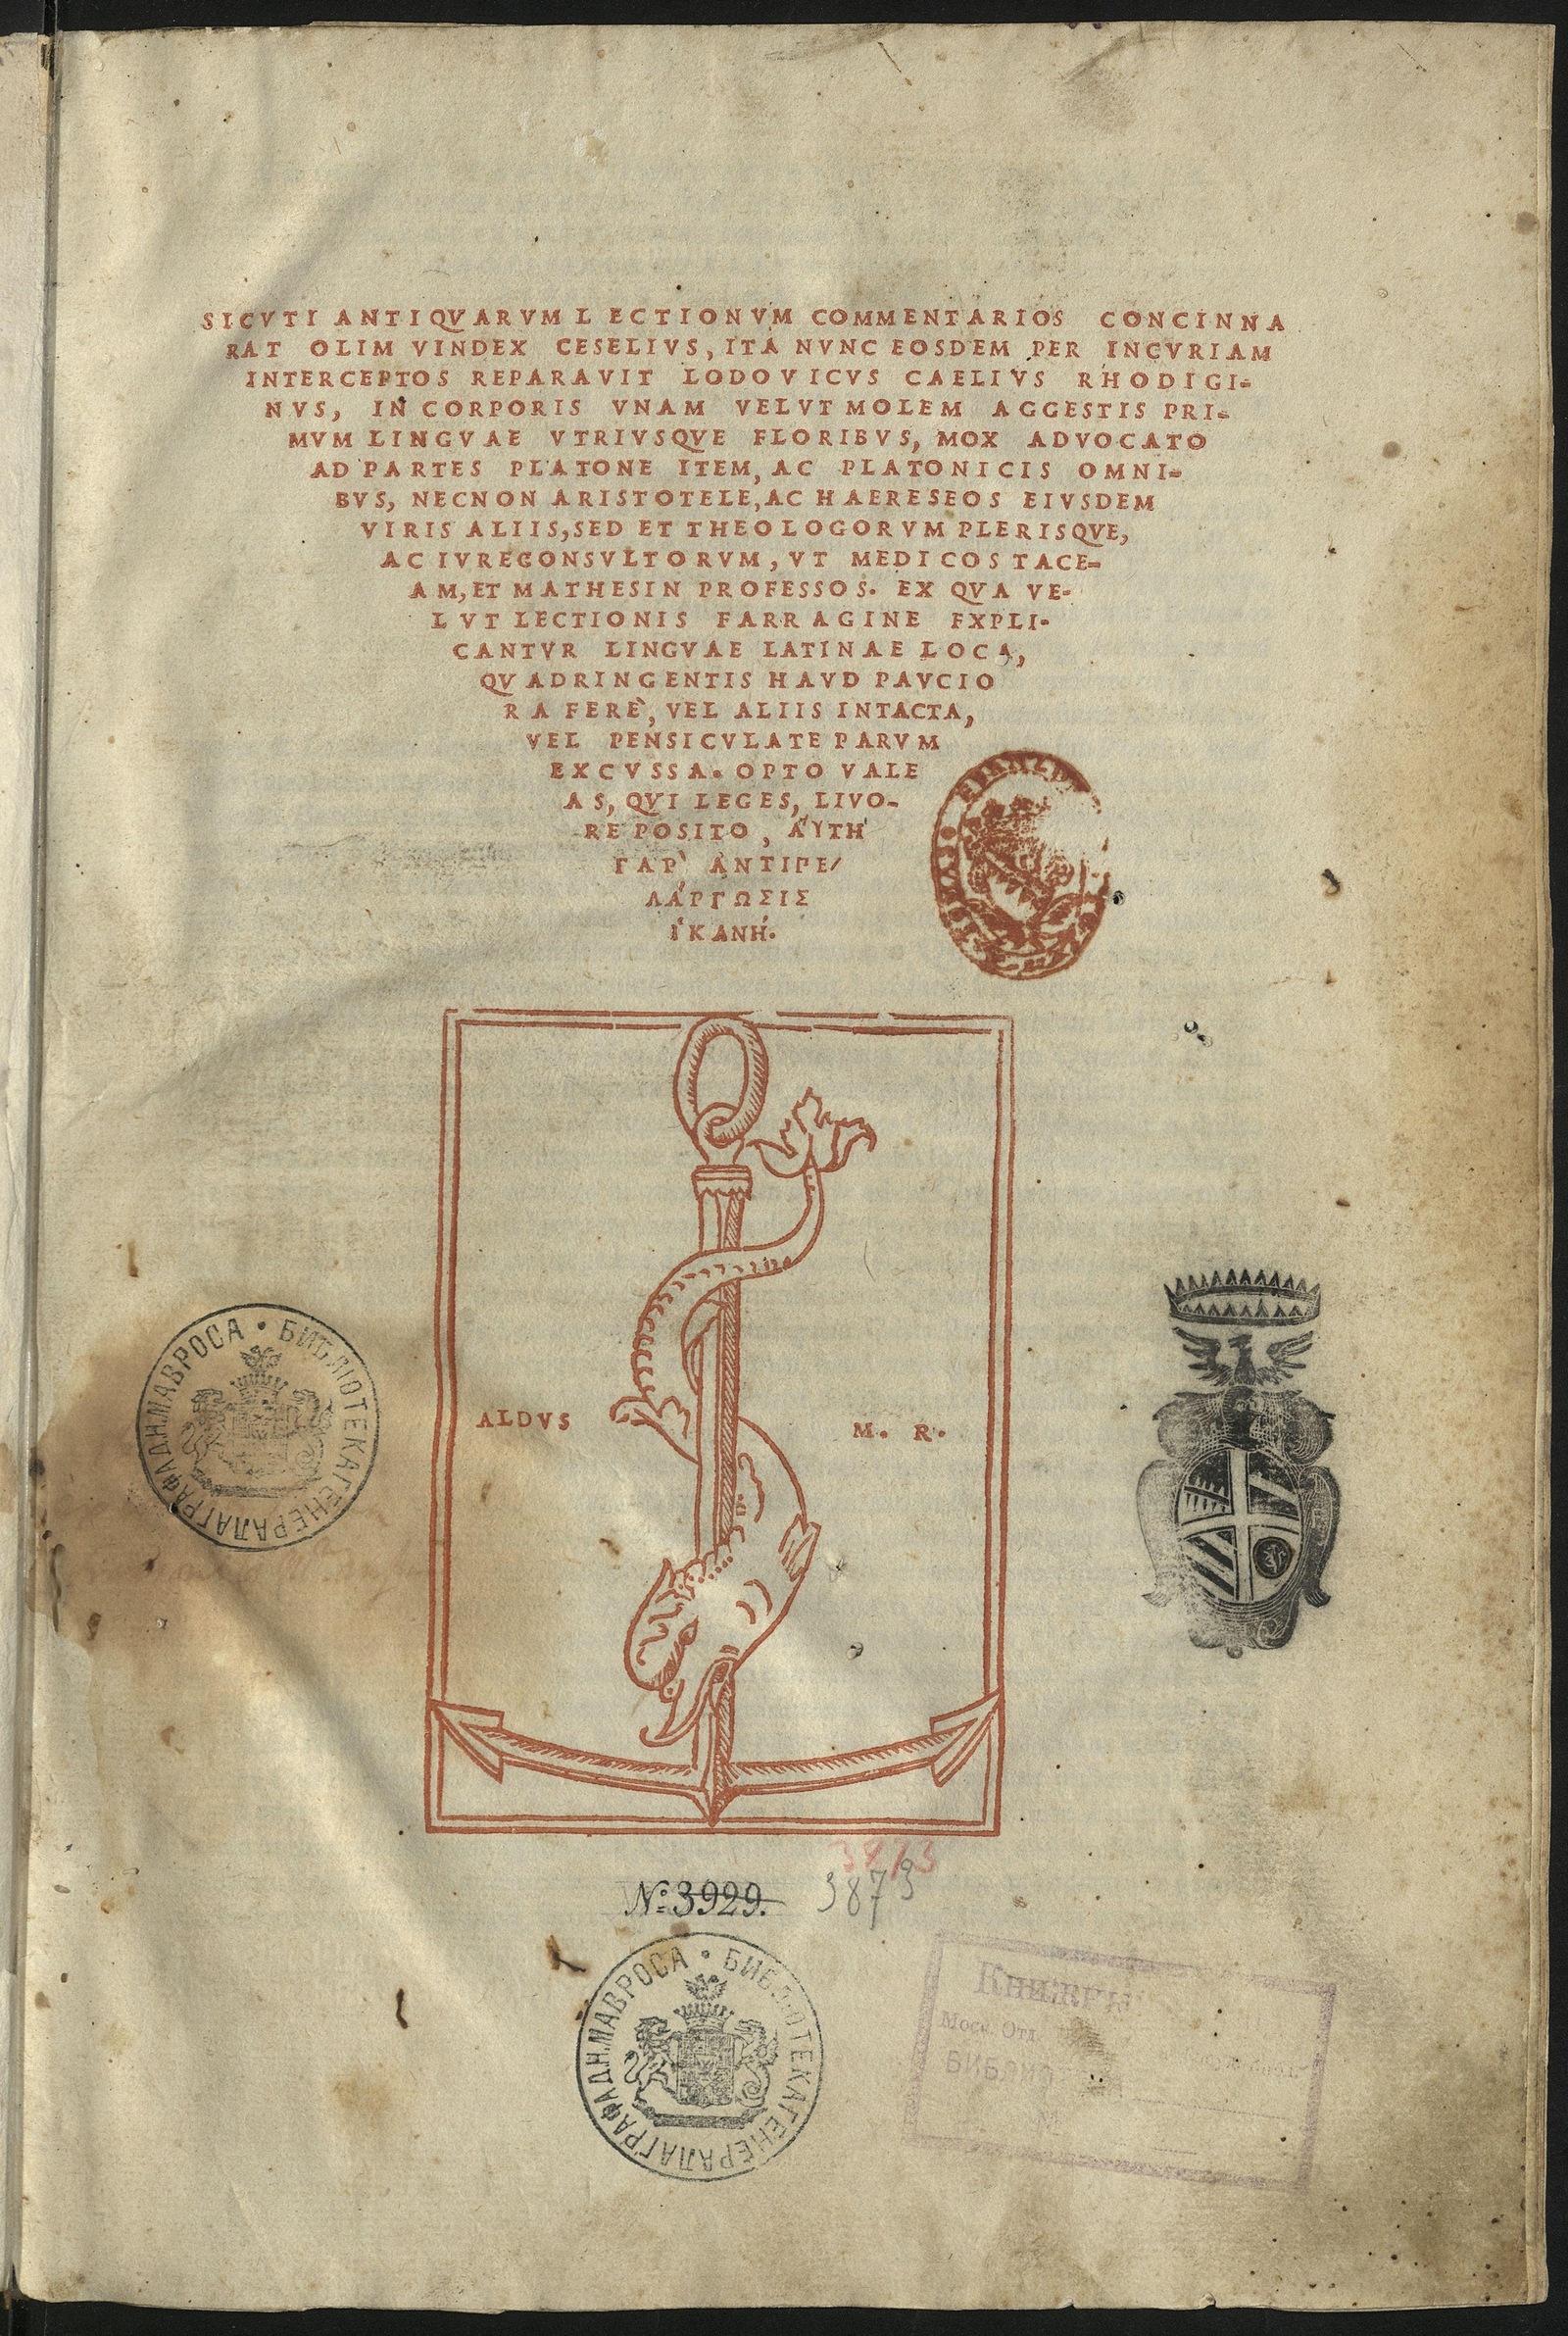 SICVTI ANTIQVARVM LECTIONVM COMMENTARIOS CONCINNA
RAT OLIM VINDEX CESELIVS, ITA NVNC EOSDEM PER INCVRIAM
INTERCEPTOS REPARAVIT LODOVICVS CAELIVS RHODIGI-
NVS, IN CORPORIS VNAM VELVT MOLEM AGGESTIS PRI-
MVM LINGVAE VTRIVSQVE FLORIBVS, MOX ADVOCATO
AD PARTES PLATONE ITEM, AC PLATONICIS OMNI-
BVS, NECNON ARISTOTELE, AC HAERESEOS EIVSDEM
VIRIS ALIIS, SED ET THEOLOGORVM PLERISQVE,
AC IVRECONSVLTORVM, VT MEDICOS TACE-
AM, ET MATHESIN PROFESSOS. EX QVA VE-
LVT LECTIONIS FARRAGINE EXPLI-
CANTVR LINGVAE LATINAE LOCA,
QVADRINGENTIS HAVD PAVCIO
RA FERE`, VEL ALIIS INTACTA,
VEL PENSICVLATE PARVM
EXCVSSA. OPTO VALE
AS, QVI LEGES, LIVO-
RE POSITO, ἈΎΤΗ
ΓᾺΡ ἈΝΤΙΠΕ/
ΛΆΡΓΩΣΙΣ
ἹΚΑΝΉ.
ALDVS M. R.
БИБЛІОТЕКА ГЕНЕРАЛА ГРАФА Д.Н. МАВРОСА
No: 3929. 3873
БИБЛІОТЕКА ГЕНЕРАЛА ГРАФА Д.Н. МАВРОСА
Моск. Отд.